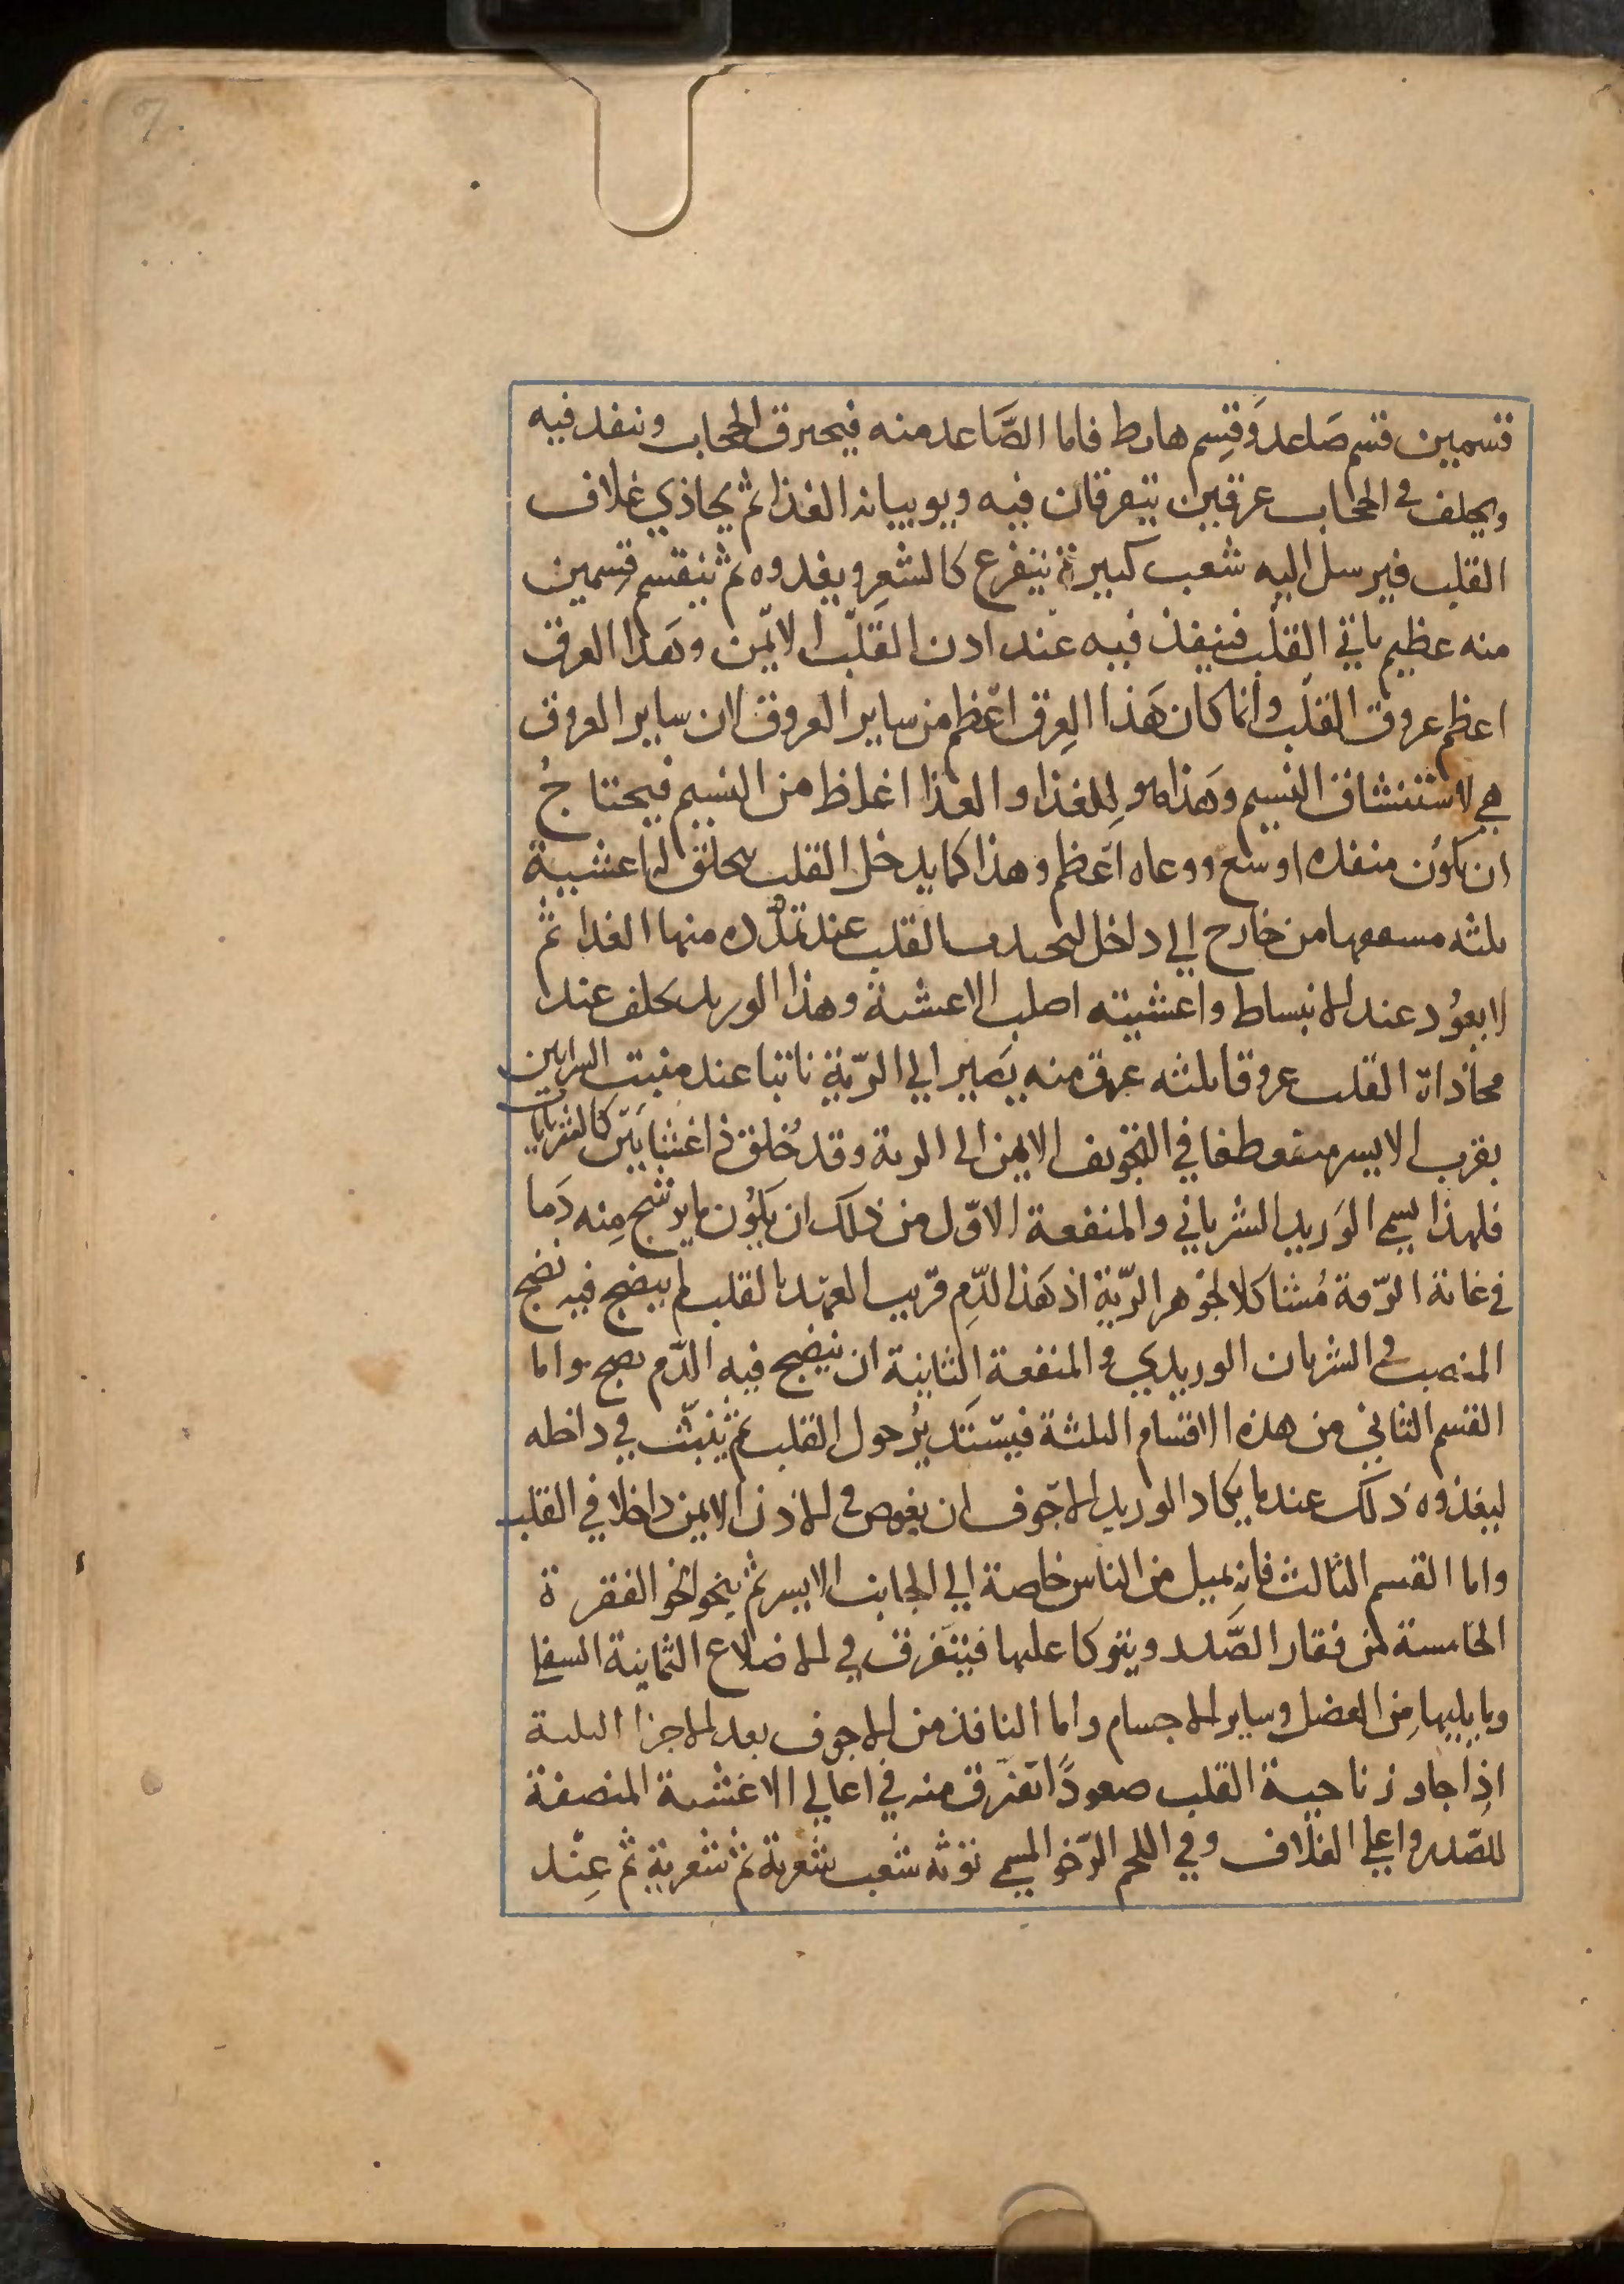 7
قسمين قسم صَاعد وَقسِم هابط فاما الصَّاعد منه فيخرق الحجاب وينفد فيه
ويخلف في الحجاب عرقين يتفرقان فيه ويوتيانه الغذا ثم يحاذي غلاف
القلب فيرسل اليه شعب كبيرة تتفرع كالشعرِ ويغدوه ثم ينقسم قسمين
منه عظيم ياتي القلب فينفذ فيه عند ادن القلب الايمن وهَذا العرق
اعظم عروق القلب وانما كان هَذا العِرق اعظم من ساير العروق لان ساير العروق
هي لاستنشاق النسيم وهَذا هو لِلغذا والغذا اغلظ من النسيم فيحتاجُ
ان يكوُن منفده اوسع ووعاه اعظم وهذا كما يدخل القلب يخلق له اغشيية
ثلثه مسقفها من خارج الي داخل ليجتدب القلب عند تمدده منها الغدا ثم
لا يعوُد عند الانبساط واغشيته اصلب الاغشية وهذا الوريد يخلف عند
محاذاة القلب عروقا ثلثه عرق منه يَصير الي الريّة ناتئا عند منبت الشرايين
بقرب الايسر منعطفا في التجويف الايمن الى الرية وقد خُلق ذا غشايين كالشريانات
فلهذا يسمي الوَريد الشرياني والمنفعة الاوّل من ذلك ان يكوُن ما يرشح مِنه دَما
في غاية الرّقة مُشاكلا لجوْهر الريّة اذ هَذا الدّمِ قريب العهد بالقلب لم ينضج فيه نضج
المنصب في الشريان الوريدي والمنفعة الثانية ان ينضج فيه الدّم نضج واما
القسم الثاني من هذه الاقسام الثلثة فيستَديرُ حول القلب ثم ينبثّ في داخله
ليغذوه ذلك عندما يكاد الوريد الاجوف ان يغوص في الاذن الايمن داخلا في القلب
واما القسم الثالث فانه يميل من الناس خاصة الي الجانب الايسر ثم ينحو نحو الفقرة
الخامسة من فقار الصَّدر ويتوكا عليها فيتفرق في الاضلاع الثمانية السفلي
وما يليها مِن العضل وساير الاجسام واما النافذ من الاجوف بعد الاجزا الثلثة
اذِا جاوز ناحية القلب صعودًا تفرق منه في اعالي الاغشية المنصفة
للصّدر واعلي الغلاف وفي اللحم الرّخو المسمي توثه شعب شعرية ثم شعرية ثم عِنْد